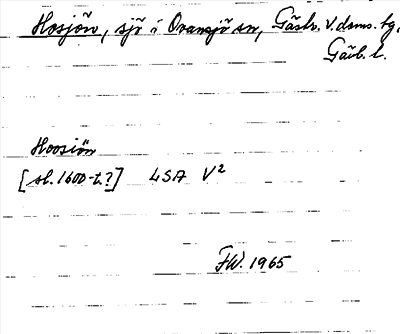 Hosjön, sjö i Ovansjö sn, Gästr. V. doms. tg,
Gävl. l.
Hoosiön
[sl. 1600-t.?] LSA V²
FW. 1965